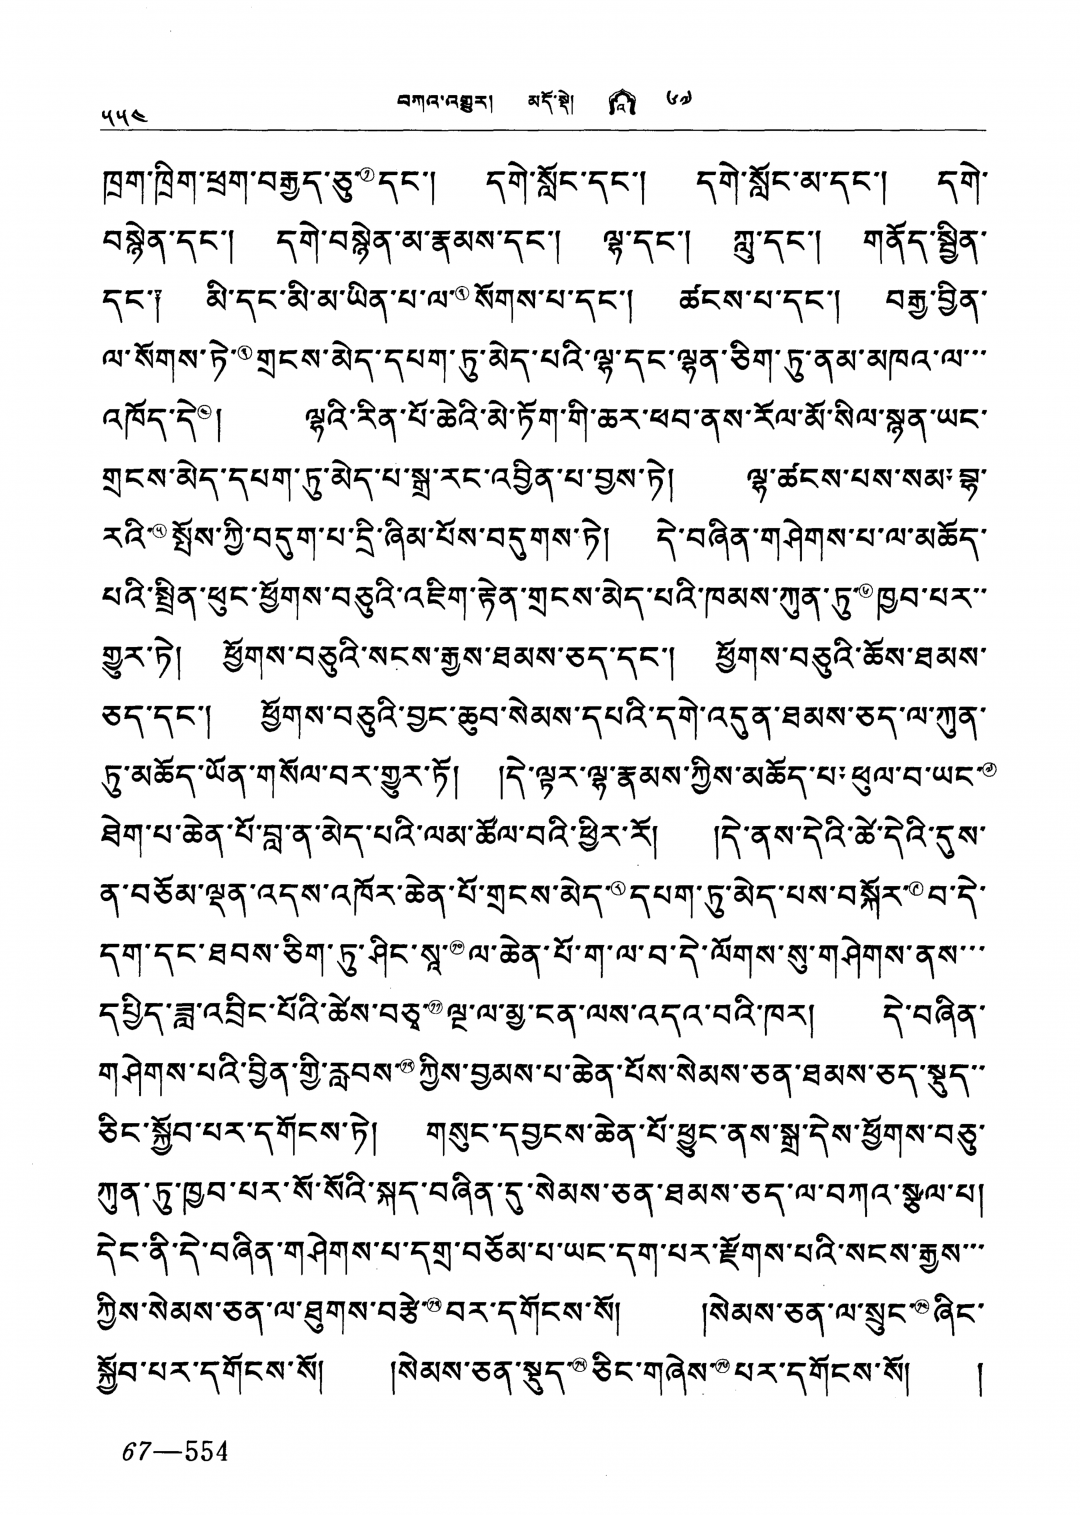 ༥༥༤
བཀའ་འགྱུར། མདོ་སྡེ། འ ༦༧
ཁྲག་ཁྲིག་ཕྲག་བརྒྱད་ཅུ་①དང་། དགེ་སློང་དང་། དགེ་སློང་མ་དང་། དགེ་
བསྙེན་དང་། དགེ་བསྙེན་མ་རྣམས་དང་། ལྷ་དང་། ཀླུ་དང་། གནོད་སྦྱིན་
དང་། མི་དང་མི་མ་ཡིན་པ་ལ་②སོགས་པ་དང་། ཚངས་པ་དང་། བརྒྱ་བྱིན་
ལ་སོགས་ཏེ་③གྲངས་མེད་དཔག་ཏུ་མེད་པའི་ལྷ་དང་ལྷན་ཅིག་ཏུ་ནམ་མཁའ་ལ་
འཁོད་དེ④། ལྷའི་རིན་པོ་ཆེའི་མེ་ཏོག་གི་ཆར་ཕབ་ནས་རོལ་མོ་སིལ་སྙན་ཡང་
གྲངས་མེད་དཔག་ཏུ་མེད་པ་སྒྲ་རང་འབྱིན་པ་བྱས་ཏེ། ལྷ་ཚངས་པས་སམ་བྷ་
རའི་⑤སྤོས་ཀྱི་བདུག་པ་དྲི་ཞིམ་པོས་བདུགས་ཏེ། དེ་བཞིན་གཤེགས་པ་ལ་མཆོད་
པའི་སྤྲིན་ཕུང་ཕྱོགས་བཅུའི་འཇིག་རྟེན་གྲངས་མེད་པའི་ཁམས་ཀུན་ཏུ་⑥ཁྱབ་པར་
གྱུར་ཏེ། ཕྱོགས་བཅུའི་སངས་རྒྱས་ཐམས་ཅད་དང་། ཕྱོགས་བཅུའི་ཆོས་ཐམས་
ཅད་དང་། ཕྱོགས་བཅུའི་བྱང་ཆུབ་སེམས་དཔའི་དགེ་འདུན་ཐམས་ཅད་ལ་ཀུན་
ཏུ་མཆོད་ཡོན་གསོལ་བར་གྱུར་ཏོ། །དེ་ལྟར་ལྷ་རྣམས་ཀྱིས་མཆོད་པ་ཕུལ་བ་ཡང་⑦
ཐེག་པ་ཆེན་པོ་བླ་ན་མེད་པའི་ལམ་ཚོལ་བའི་ཕྱིར་རོ། །དེ་ནས་དེའི་ཚེ་དེའི་དུས་
ན་བཅོམ་ལྡན་འདས་འཁོར་ཆེན་པོ་གྲངས་མེད་⑧དཔག་ཏུ་མེད་པས་བསྐོར་⑨བ་དེ་
དག་དང་ཐབས་ཅིག་ཏུ་ཤིང་སཱ་⑩ལ་ཆེན་པོ་ག་ལ་བ་དེ་ལོགས་སུ་གཤེགས་ནས་
དཔྱིད་ཟླ་འབྲིང་པོའི་ཚེས་བཅྭ་⑪ལྔ་ལ་མྱ་ངན་ལས་འདའ་བའི་ཁར། དེ་བཞིན་
གཤེགས་པའི་བྱིན་གྱི་རླབས་⑫ཀྱིས་བྱམས་པ་ཆེན་པོས་སེམས་ཅན་ཐམས་ཅད་སྡུད་
ཅིང་སྐྱོབ་པར་དགོངས་ཏེ། གསུང་དབྱངས་ཆེན་པོ་ཕྱུང་ནས་སྒྲ་དེས་ཕྱོགས་བཅུ་
ཀུན་ཏུ་ཁྱབ་པར་སོ་སོའི་སྐད་བཞིན་དུ་སེམས་ཅན་ཐམས་ཅད་ལ་བཀའ་སྩལ་པ།
དེང་ནི་དེ་བཞིན་གཤེགས་པ་དགྲ་བཅོམ་པ་ཡང་དག་པར་རྫོགས་པའི་སངས་རྒྱས་
ཀྱིས་སེམས་ཅན་ལ་ཐུགས་བརྩེ་⑬བར་དགོངས་སོ། །སེམས་ཅན་ལ་སྲུང་⑭ཞིང་
སྐྱོབ་པར་དགོངས་སོ། །སེམས་ཅན་སྡུད་⑮ཅིང་གཞེས་⑯པར་དགོངས་སོ། །
67—554